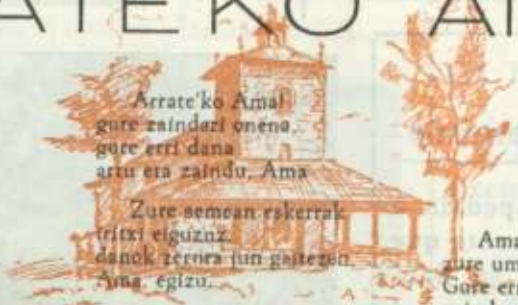 ATEKO AM
Arrate'ko Ama!
gure zaindari onena,
gure erri dana
artu eta zaindu, Ama
Zure semean eskerrak
iritxi eiguznz,
danok zerura jun gaitezen
Ama, egizu.
Ama
zure um
Gore err